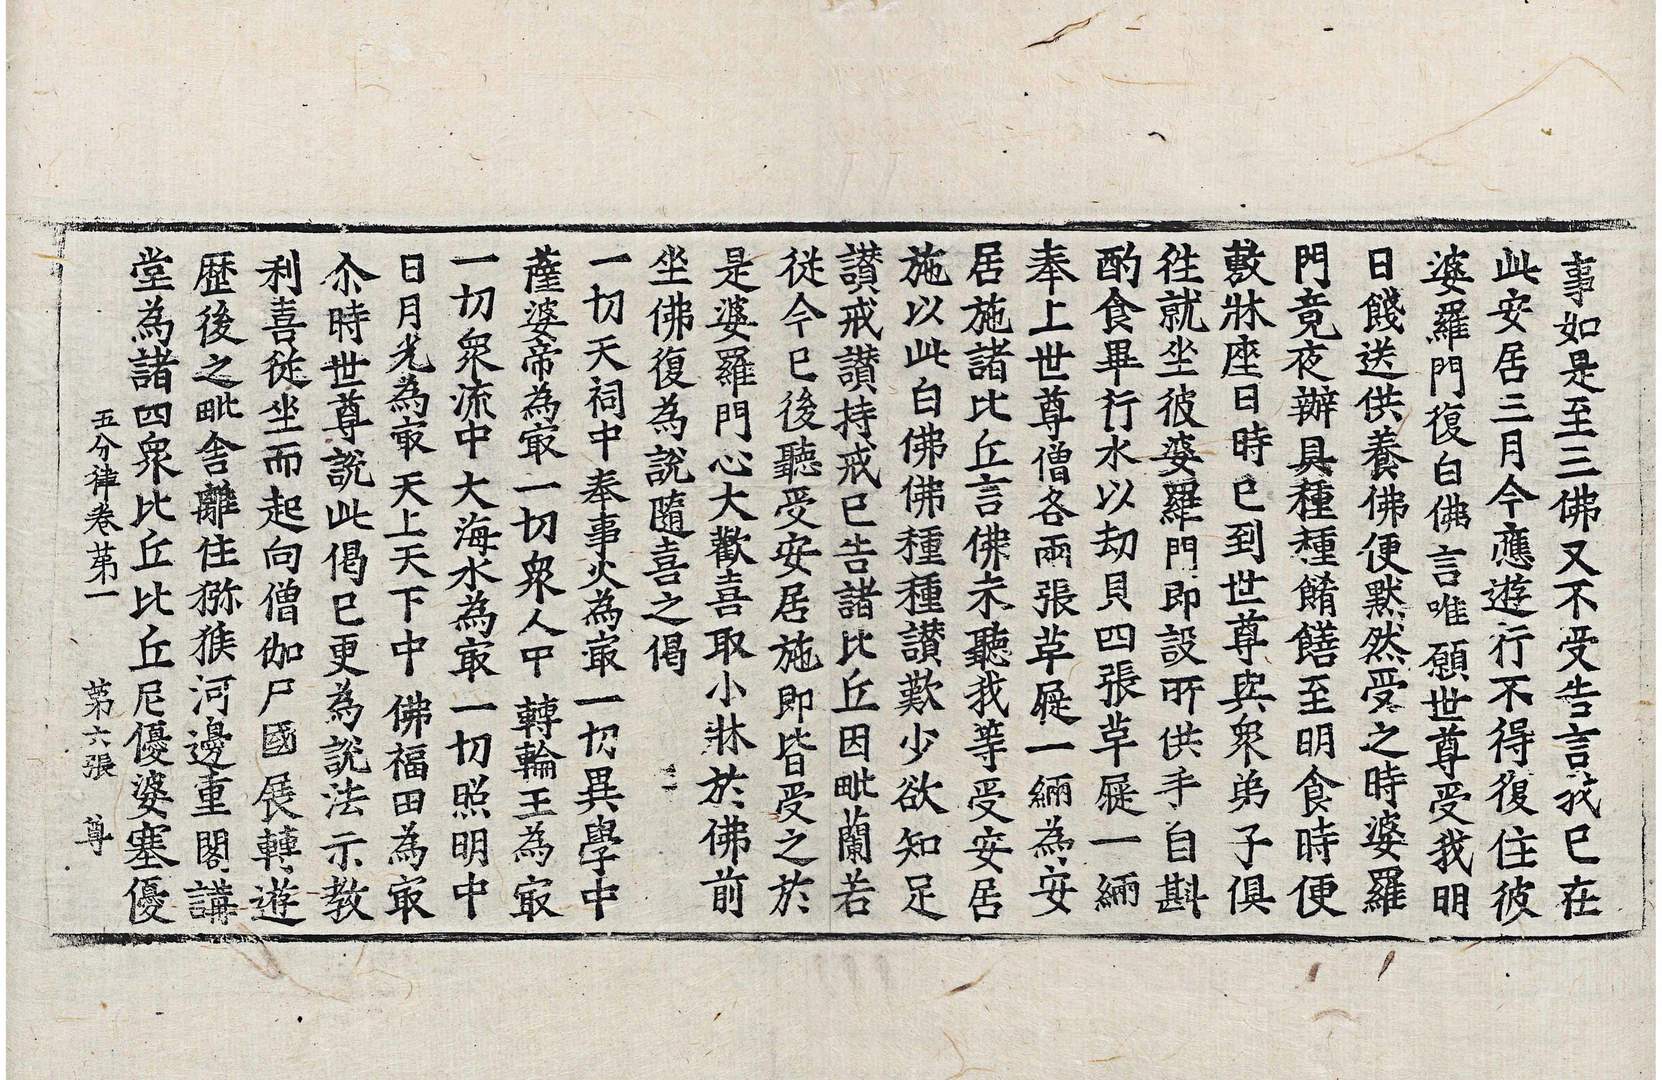 事如是至三佛又不受告言我已在
此安居三月今應遊行不得復住彼
婆羅門復白佛言唯願世尊受我明
日餞送供養佛便黙然受之時婆羅
門竟夜辦具種種餚饍至明食時便
敷牀座日時已到世尊與衆弟子俱
徃就坐彼婆羅門即設所供手自斟
酌食畢行水以劫貝四張草屣一緉
奉上世尊僧各兩張草屣一緉為安
居施諸比丘言佛未聽我等受安居
施以此白佛佛種種讃歎少欲知足
讃戒讃持戒已告諸比丘因毗蘭若
従今已後聽受安居施即皆受之於
是婆羅門心大歡喜取小牀於佛前
坐佛復為說隨喜之偈
一切天祠中 奉事火為㝡 一切異學中
薩婆帝為㝡 一切衆人中 轉輪王為㝡
一切衆流中 大海水為㝡 一切照明中
日月光為㝡 天上天下中 佛福田為㝡
尒時世尊說此偈已更為說法示教
利喜従坐而起向僧伽尸國展轉遊
歷後之毗舍離住猕猴河邊重閣講
堂為諸四衆比丘比丘尼優婆塞優
五分律卷苐一 苐六張 尊